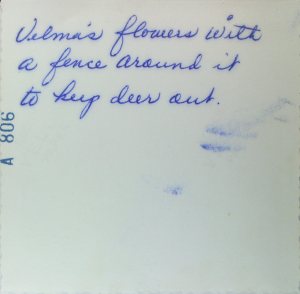 Velma's flowers with
a fence around it
to keep deer out.
A 806